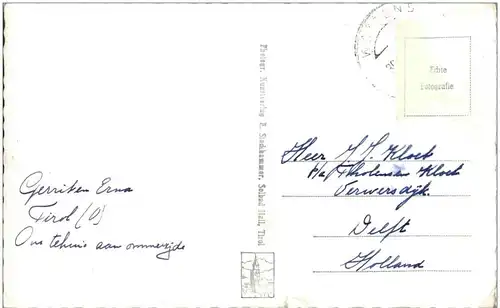 WATTENS
Echte
Fotografie
Photogr. Kunstverlag R. Stockhammer, Solbad Hall, Tirol
Heer J. J. Kloek
p/a Tholensen Kloek
Verwersdijk.
Delft
Holland
Gerriken Erna
Tirol (O)
Ons tehuis aan ommezijde